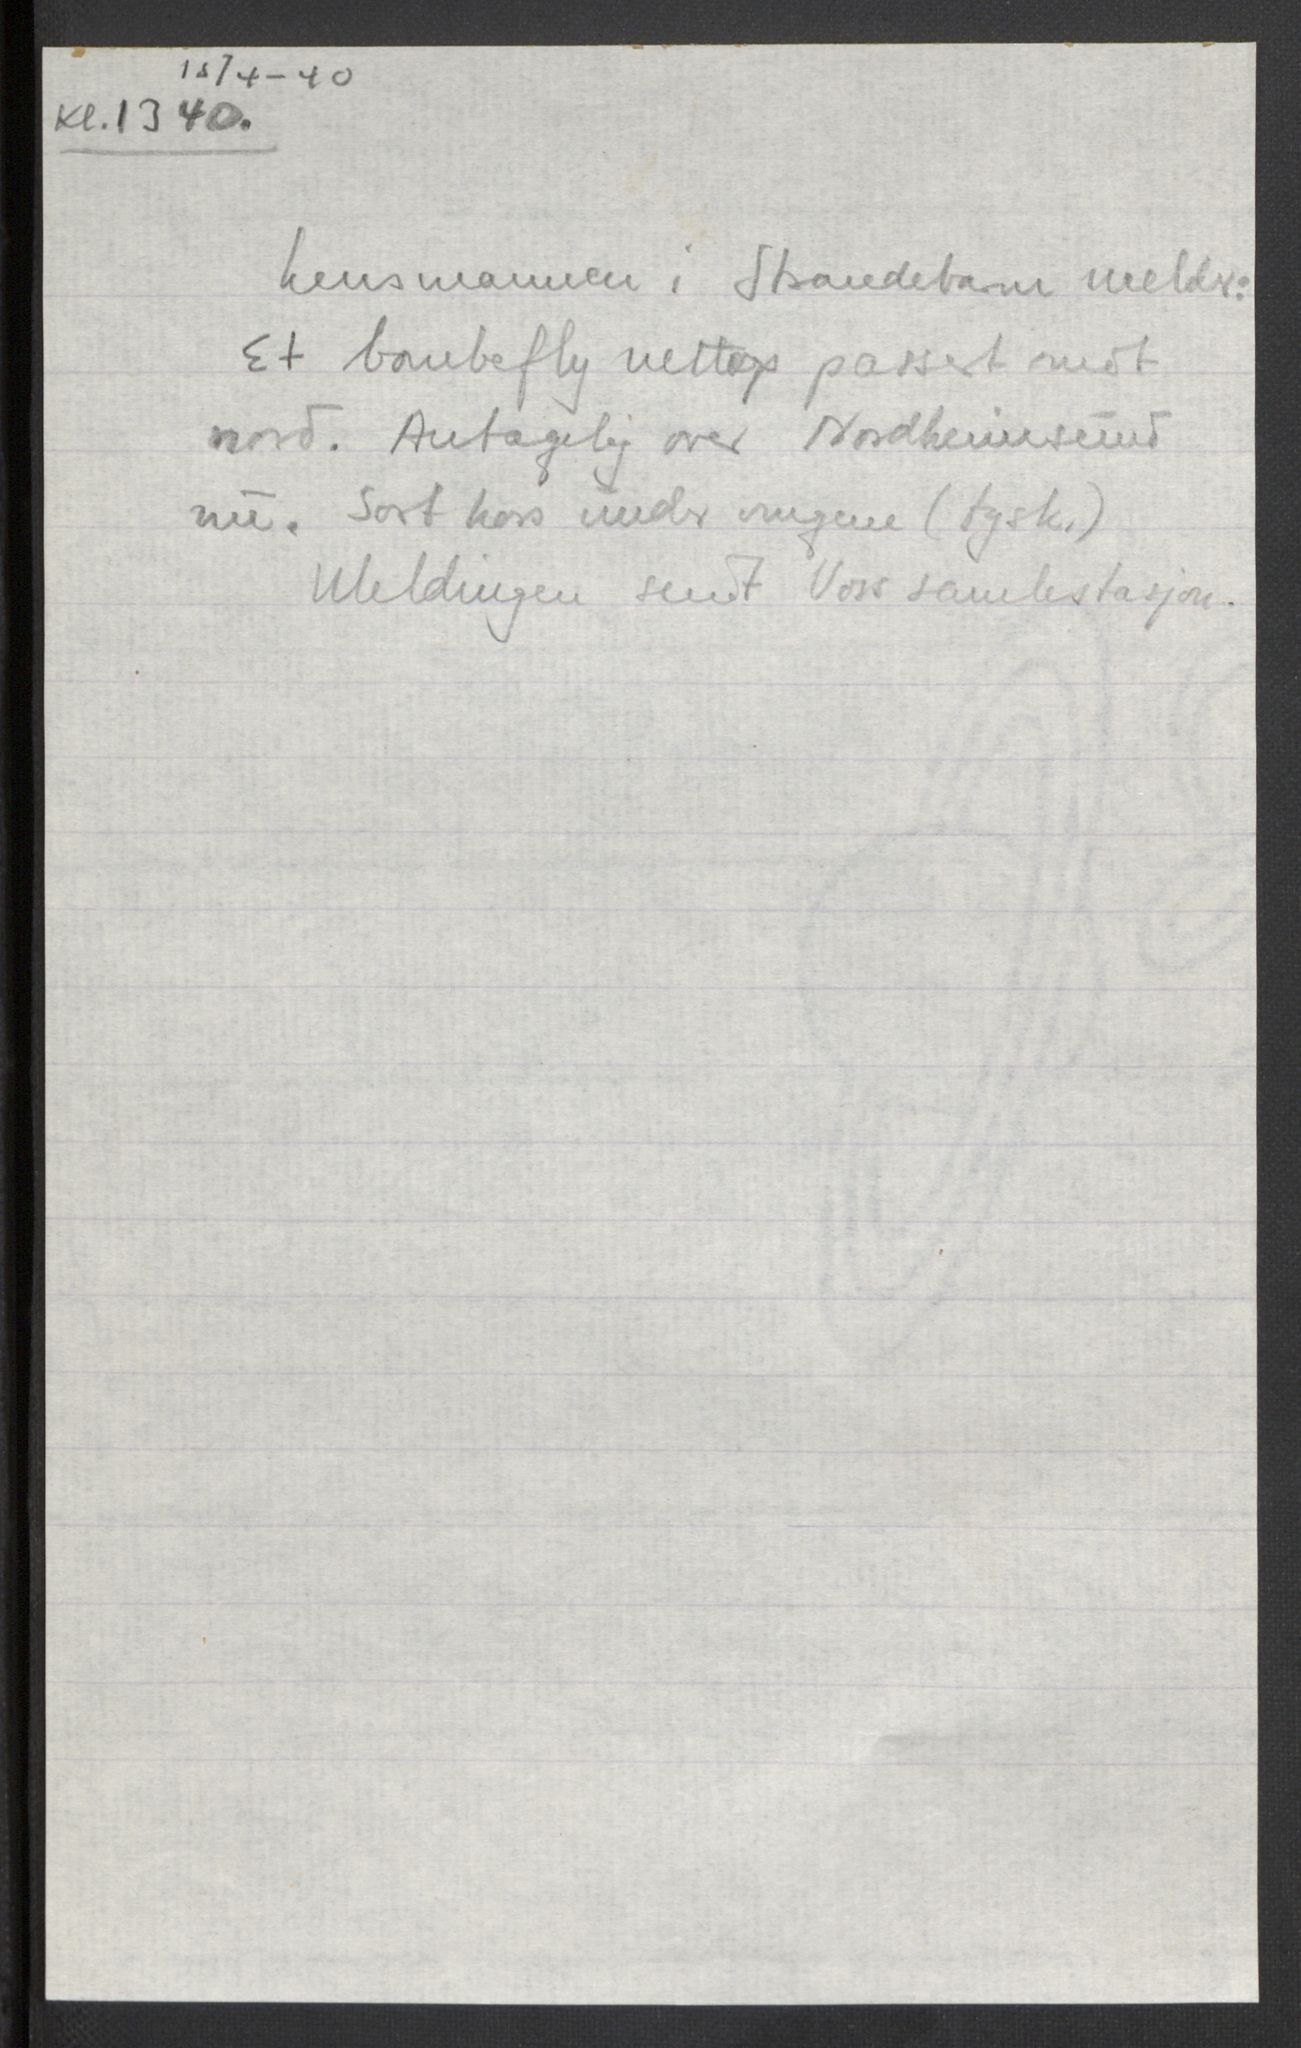 15/4-40
Kl. 1340.
Lensmannen i Strandebarm melder:
Et bombefly nettop passert mot
nord. Antagelig over Nordheimsund
nu. Sort kors under vingene (tysk.)
Meldingen sendt Voss samlestasjon.